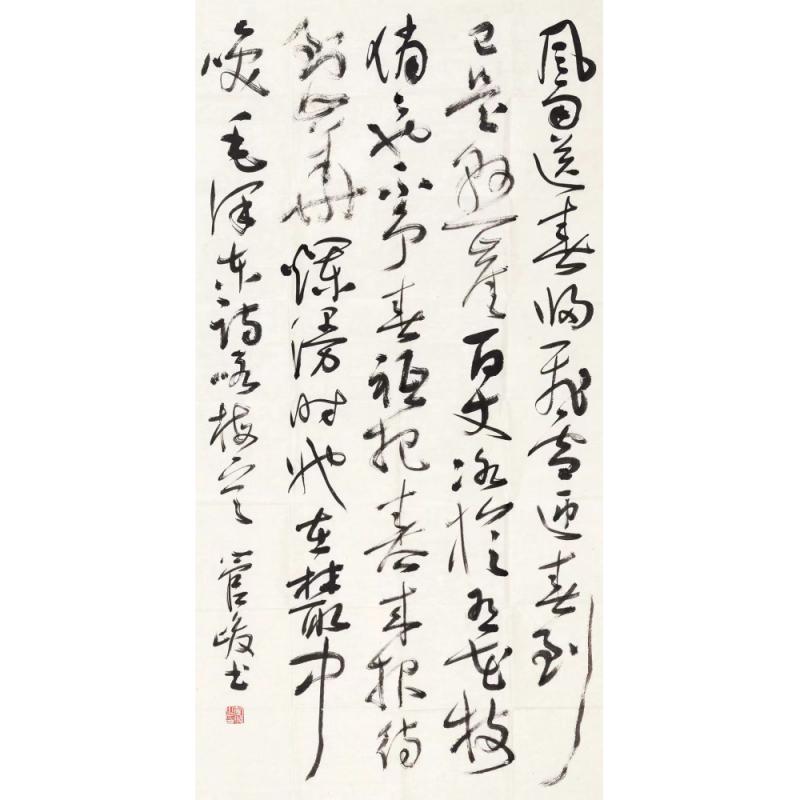 風雨送春歸飛雪迎春到
已是懸崖百丈冰猶有花枝
俏〻也不爭春祇把春來報待
到山華爛漫時她在叢中
咲 毛澤東詩咏梅 管峻书